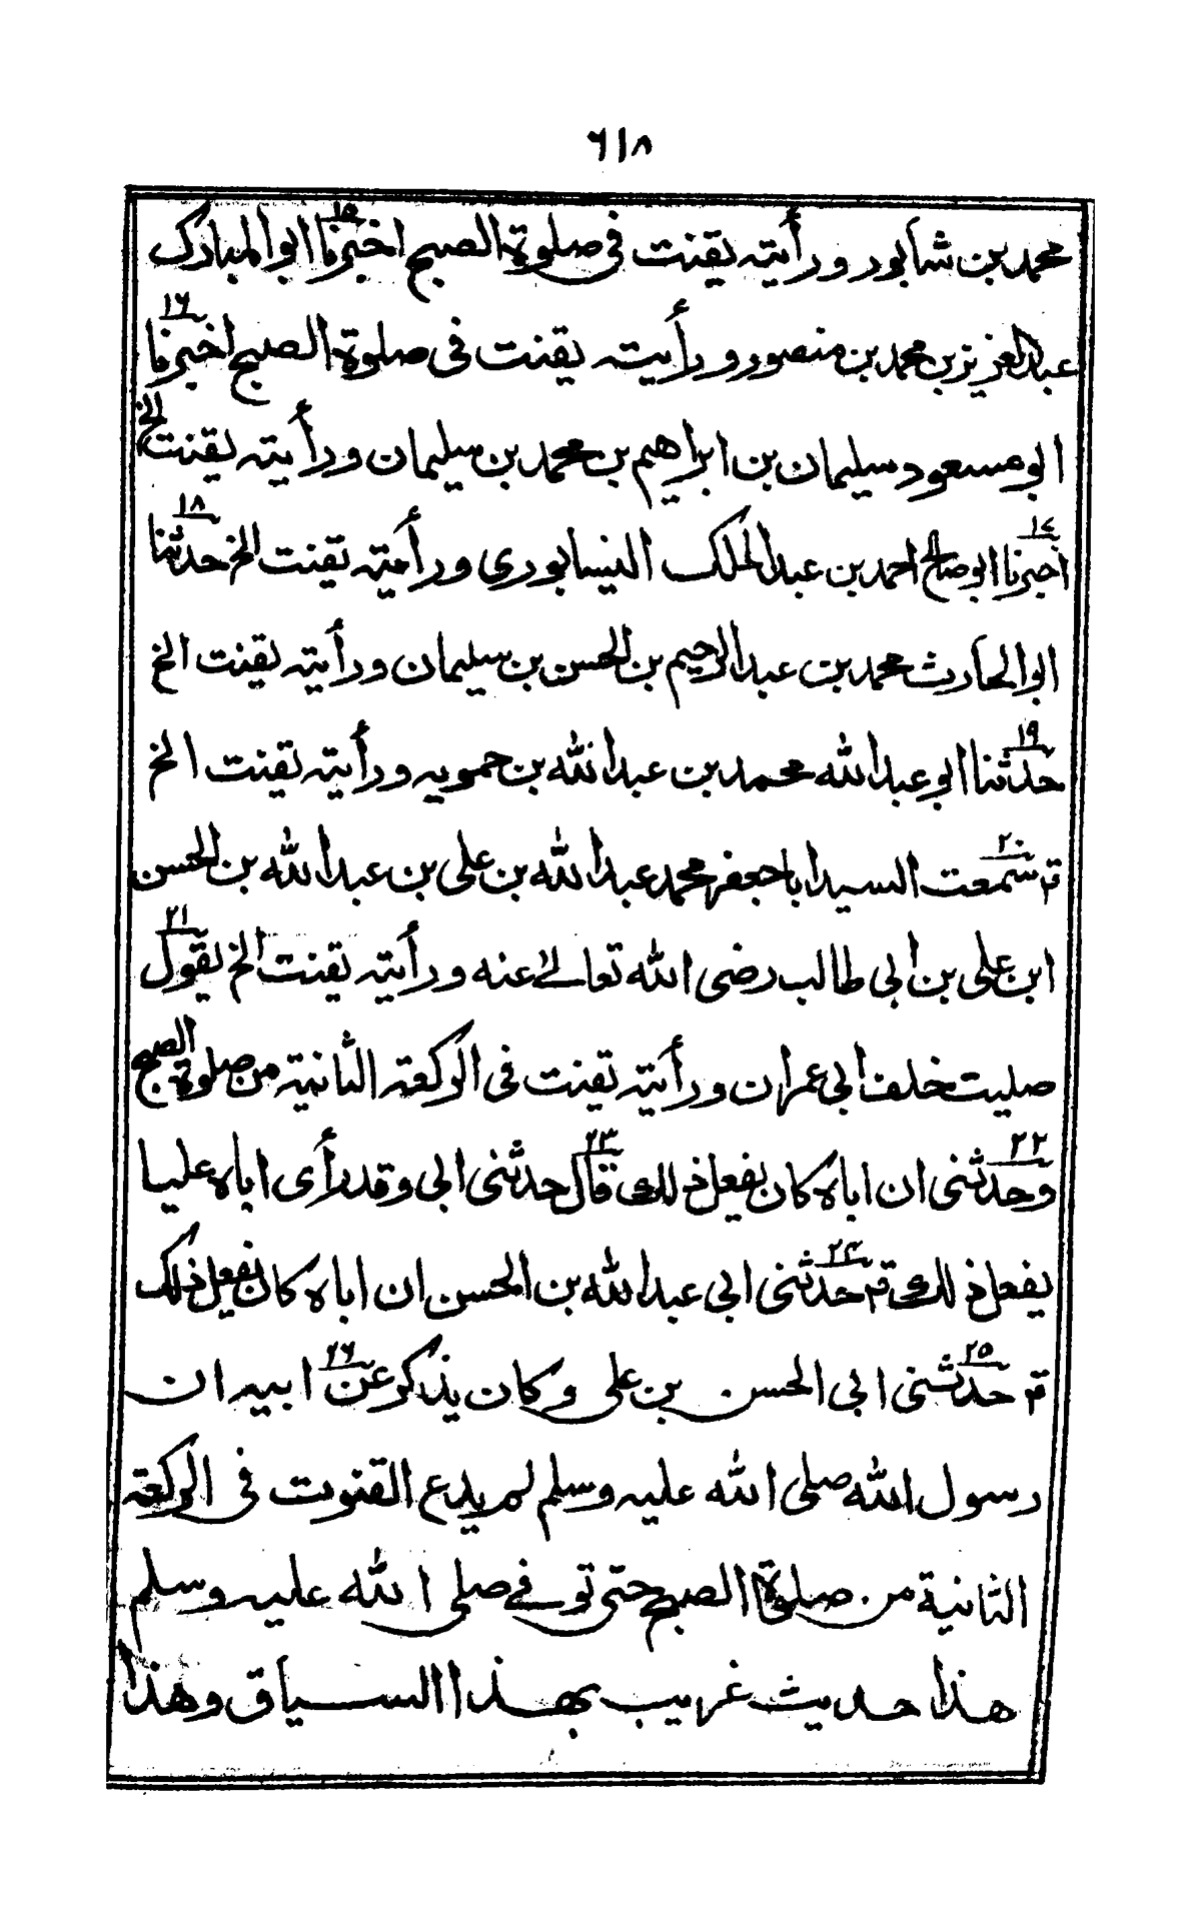 ٦١٨
محمد بن شابور ورأيته يقنت فى صلوة الصبح اخبرنا١٥ ابو المبارك
عبد العزيز بن محمد بن منصور ورأيته يقنت فى صلوة الصبح اخبرنا١٦
ابو مسعود سليمان بن ابراهيم بن محمد بن سليمان ورأيته يقنت الخ
اخبرنا١٧ ابو صالح احمد بن عبد الملك النيسابورى ورأيته يقنت الخ حدثنا١٨
ابو الحارث محمد بن عبد الرحيم بن الحسن بن سليمان ورأيته يقنت الخ
حدثنا١٩ ابو عبد الله محمد بن عبد الله بن حمويه ورأيته يقنت الخ
قم سمعت٢٠ السيد ابا جعفر محمد عبد الله بن على بن عبد الله بن الحسن
ابن على بن ابى طالب رضى الله تعالے عنه ورأيته يقنت الخ يقول٢١
صليت خلف ابى عمران ورأيته يقنت فى الركعة الثانية من صلوة الصبح
وحدثنى٢٢ ان اباه كان يفعل ذلك قال٢٣ حدثنى ابى وقد رأى اباه عليا
يفعل ذلك قم حدثنى٢٤ ابى عبد الله بن الحسن ان اباه كان يفعل ذلك
قم حدثنى٢٥ ابى الحسن بن على وكان يذكر عن٢٦ ابيه ان
رسول الله صلى الله عليه وسلم لم يدع القنوت فى الركعة
الثانية من صلوة الصبح حتى توفے صلى الله عليه وسلم
هذا حديث غريب بهذا السياق وهذا